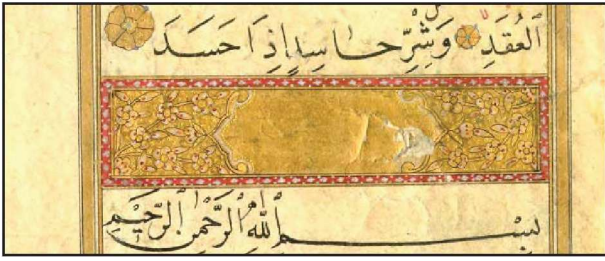 العُقَدِ وَشَرِّ حَاسِدٍ إِذَا حَسَدَ
بِسْمِ اللَّهِ الرَّحْمٰنِ الرَّحِيمِ